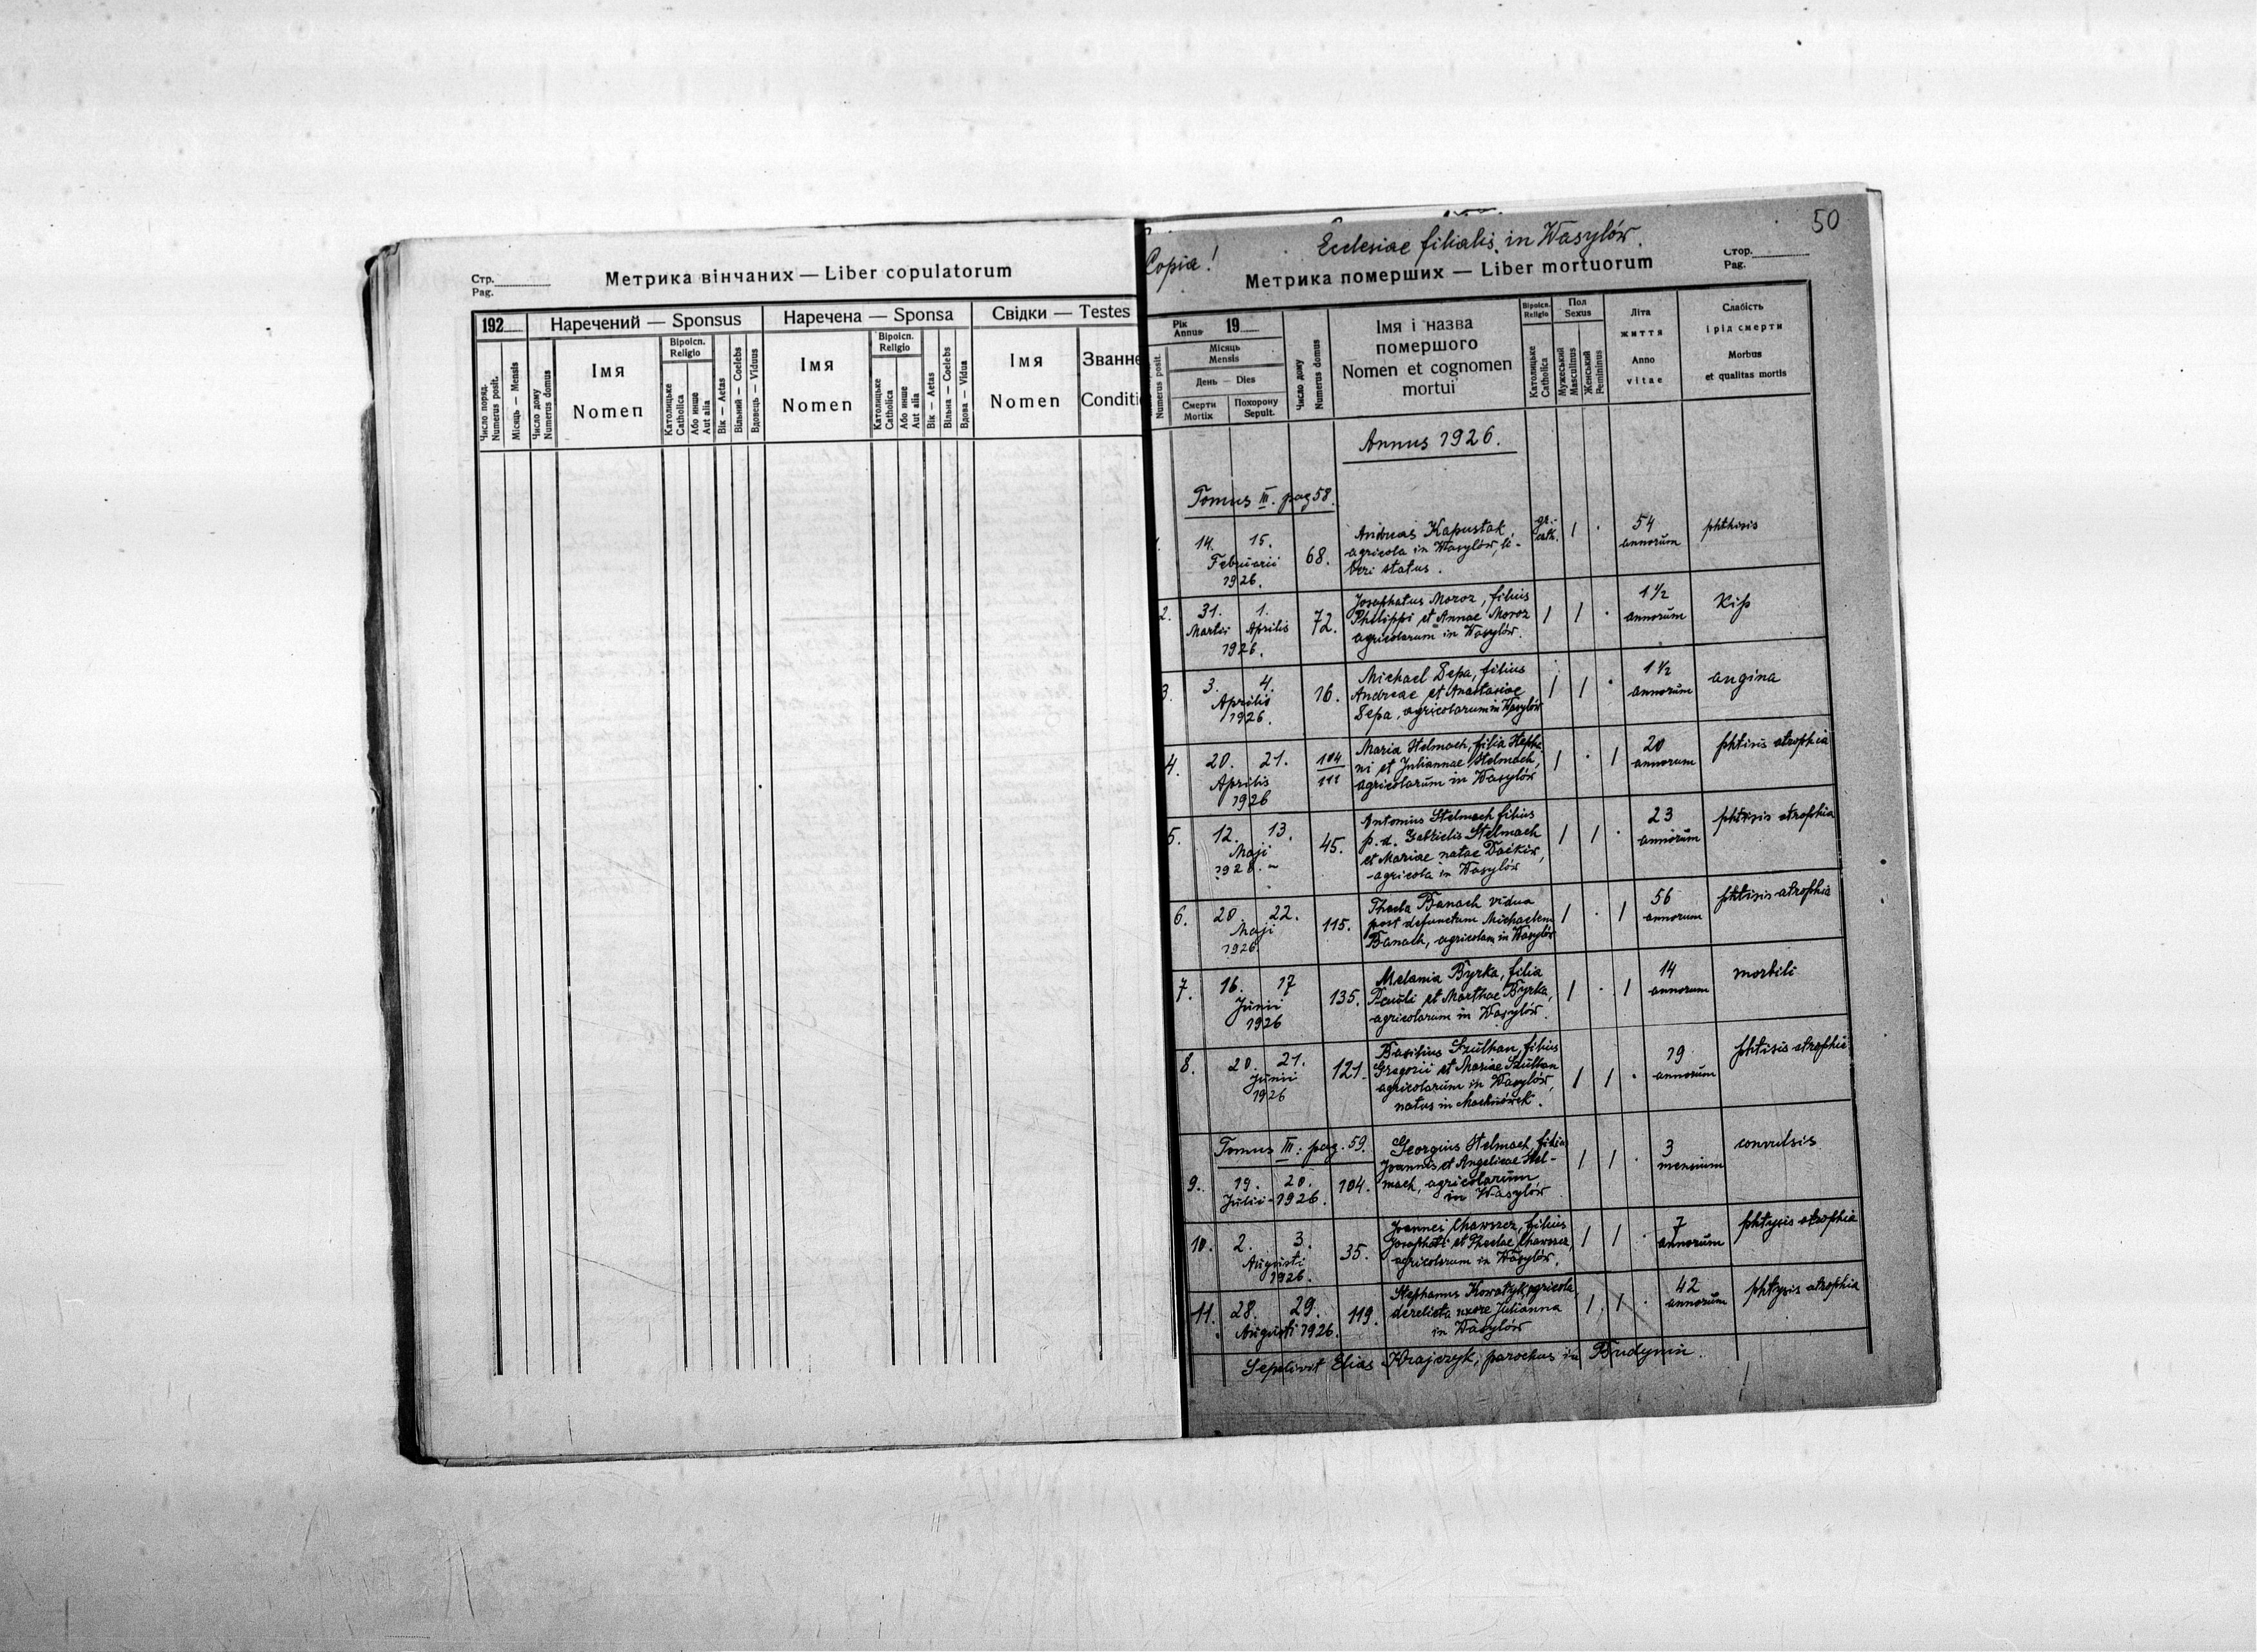 Стр.
Pag.
Метрика вінчаних — Liber copulatorum
192
Наречений — Sponsus
Наречена — Sponsa
Свідки — Testes
Число поряд.
Numerus posit.
Місяць — Mensis
Число дому
Numerus domus
Імя
Nomen
Віроісп.
Religio
Католицьке
Catholica
Або инше
Aut alia
Вік — Aetas
Вільний — Coelebs
Вдовець — Viduus
Імя
Nomen
Віроісп.
Religio
Католицьке
Catholica
Або инше
Aut alia
Вік — Aetas
Вільна — Coelebs
Вдова — Vidua
Імя
Nomen
Званнє
Conditi
50
Copia!
Ecclesiae filialis in Wasylów.
Метрика померших — Liber mortuorum
Стор.
Pag.
Рік
Annus 19
Numerus posit.
Місяць
Mensis
День — Dies
Смерти
Mortix
Похорону
Sepult.
Число дому
Numerus domus
Імя і назва
помершого
Nomen et cognomen
mortui
Віроісп.
Religio
Католицьке
Catholica
Пол
Sexus
Мужеський
Masculinus
Женський
Femininus
Літа
життя
Anno
vitae
Слабість
і рід смерти
Morbus
et qualitas mortis
Annus 1926.
Tomus III. pag 58.
1. 14. 15. Februarii 1926. 68. Andreas Kapustak, gr. cath. | . 54 annorum phthisis
agricola in Wasylów, li-
beri status.
2. 31. Martii 1. Aprilis 1926. 72. Josaphatus Moroz, filius | | . 1 1/2 annorum
Philippi et Annae Moroz
agricolarum in Wasylów.
3. 3. 4. Aprilis 1926. 16. Michael Depa, filius | | . 1 1/2 annorum angina
Andreae et Anastasiae
Depa, agricolarum in Wasylów
4. 20. 21. Aprilis 1926 104/111 Maria Stelmach, filia Stepha- | . | 20 annorum phtisis atrophia
ni et Juliannae Stelmach,
agricolarum in Wasylów
5. 12. 13. Maji 1926. 45. Antonius Stelmach filius | | . 23 annorum phtisis atrophia
p. d. Gabrielis Stelmach
et Mariae natae
agricola in Wasylów
6. 20. 22. Maji 1926 115. Thecla Banach vidua | . | 56 annorum phtisis atrophia
post defunctum Michaelem
Banach, agricolam in Wasylów
7. 16. 17 Junii 1926 135. Melania Byrka, filia | . | 14 annorum morbili
Pauli et Marthae Byrka,
agricolarum in Wasylów.
8. 20. 21. Junii 1926 121. Basilius Szulhan, filius | | . 19 annorum phtisis atrophia
Gregorii et Mariae Szulhan
agricolarum in Wasylów,
natus in Machnówek.
Tomus III. pag. 59.
9. 19. 20. Julii 1926. 104. Georgius Stelmach, filius | | . 3 mensium convulsis
Joannis et Angelicae Stel-
mach, agricolarum
in Wasylów
10. 2. 3. Augusti 1926. 35. Joannes filius | | . 7 annorum phtysis atrophia
Josaphati et Theclae
agricolarum in Wasylów.
11. 28. 29. Augusti 1926. 119. Stephanus Kowalzyk, agricola | | . 42 annorum phtysis atrophia
derelicta uxore Julianna
in Wasylów
Sepelivit Elias Krajczyk, parochus in Budynin.